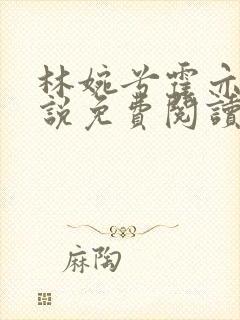 林婉兮霆亦
說免費閱讀
麻陶